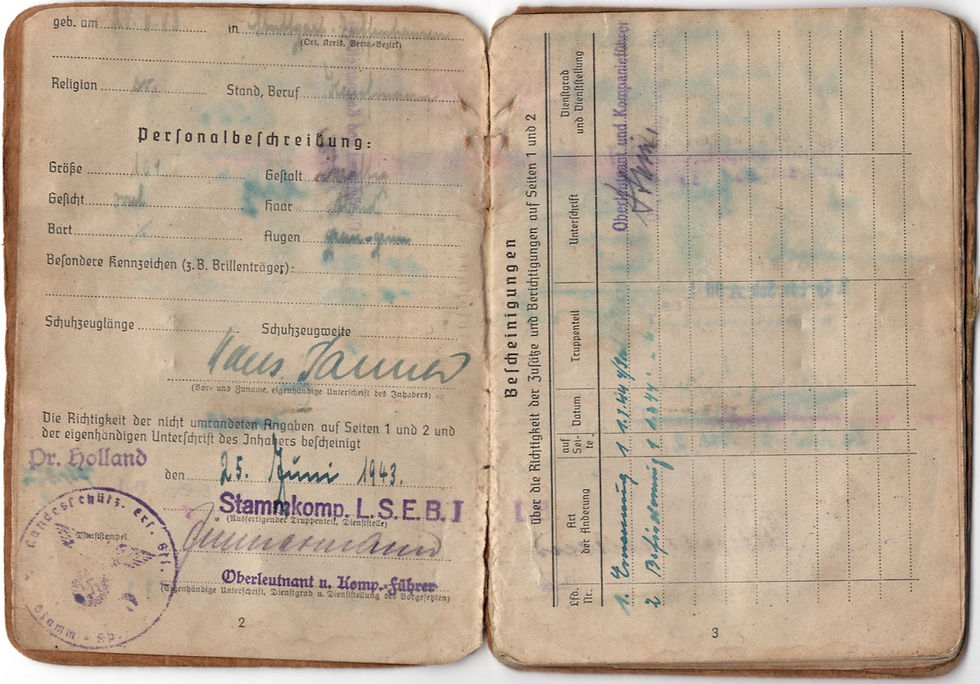 geb. am in
(Ort, Kreis, Verw.-Bezirk)
Religion ev. Stand, Beruf Kaufmann
Personalbeschreibung:
Größe Gestalt
Gesicht oval Haar
Bart / Augen
Besondere Kennzeichen (z. B. Brillenträger):
Schuhzeuglänge Schuhzeugweite
Hans
(Vor- und Zuname, eigenhändige Unterschrift des Inhabers)
Die Richtigkeit der nicht umrandeten Angaben auf Seiten 1 und 2 und
der eigenhändigen Unterschrift des Inhabers bescheinigt
Pr. Holland
den 25. Juni 1943.
Stammkomp. L.S.E.B. I
(Ausfertigender Truppenteil, Dienststelle)
Dienststempel
Zimmermann
Oberleutnant u. Komp.-Führer
(Eigenhändige Unterschrift, Dienstgrad u. Dienststellung des Vorgesetzten)
Landesschütz. Ers. Btl.
Stamm - Kp.
2
Bescheinigungen
über die Richtigkeit der Zusätze und Berichtigungen auf Seiten 1 und 2
Lfd. Nr. Art der Änderung auf Seite Datum Truppenteil Unterschrift Dienstgrad und Dienststellung
1. Ernennung 1 1.2.44
2 Beförderung 1
Oberleutnant und Kompanieführer
3